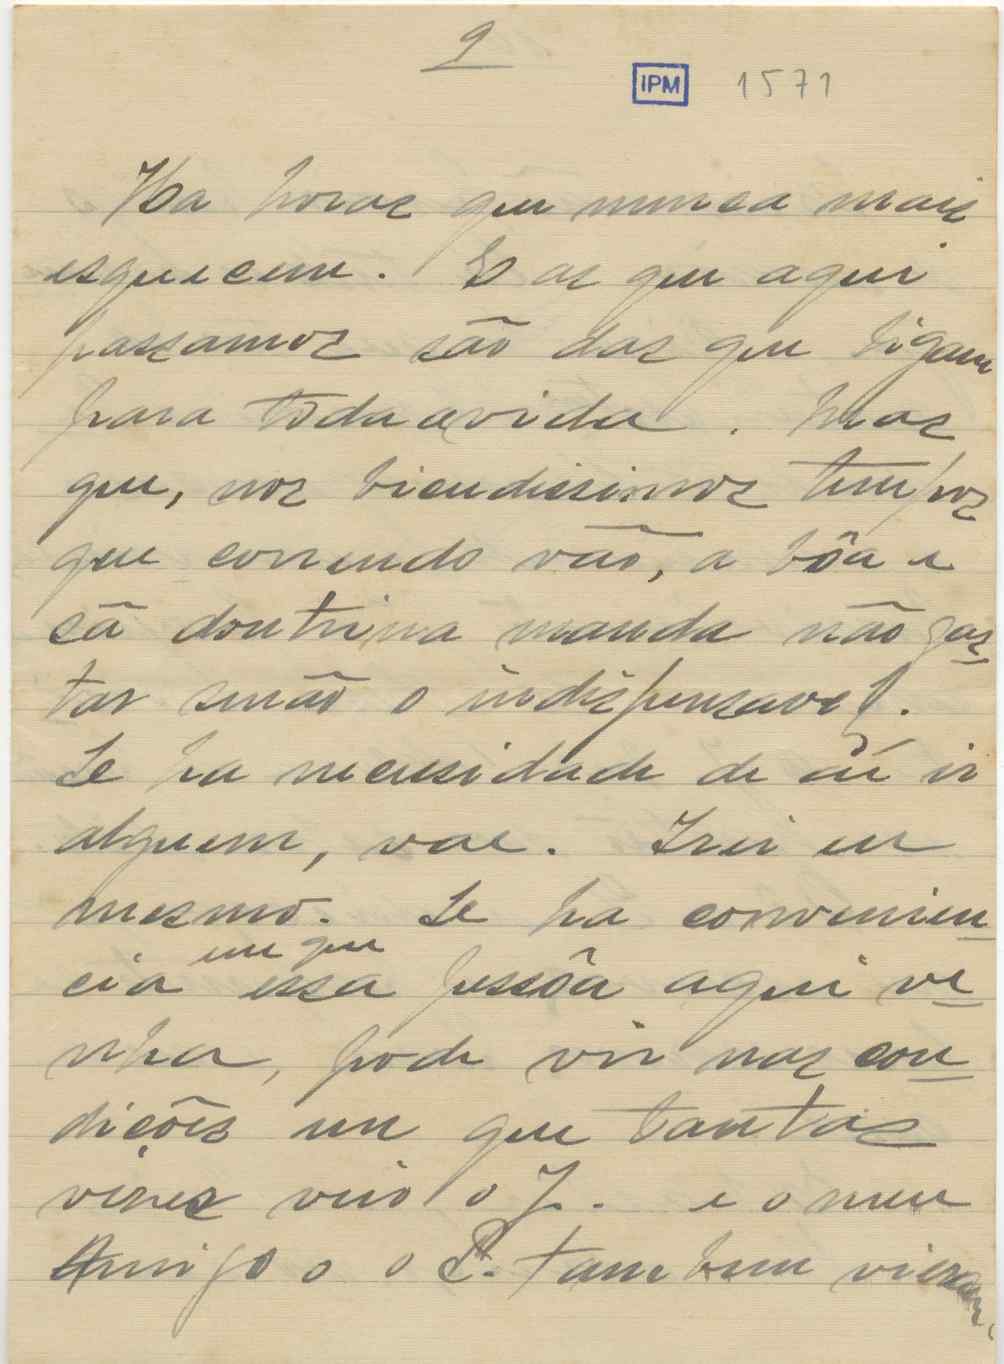 9
IPM 1571
Ha horas que nunca mais
esquecem. E as que aqui
passamos são das que ligam
para toda a vida. Mas
que, nos bicudissimos tempos
que correndo vão, a bôa e
sã doutrina manda não gas-
tar senão o indispensavel.
Se ha necessidade de aí ir
alguem, vae. Irei eu
mesmo. Se ha convenien-
cia em que essa pessôa aqui ve-
nha, pode vir nas con-
dições em que tantas
vezes veio o J. e o meu
Amigo e o P. tambem vieram.